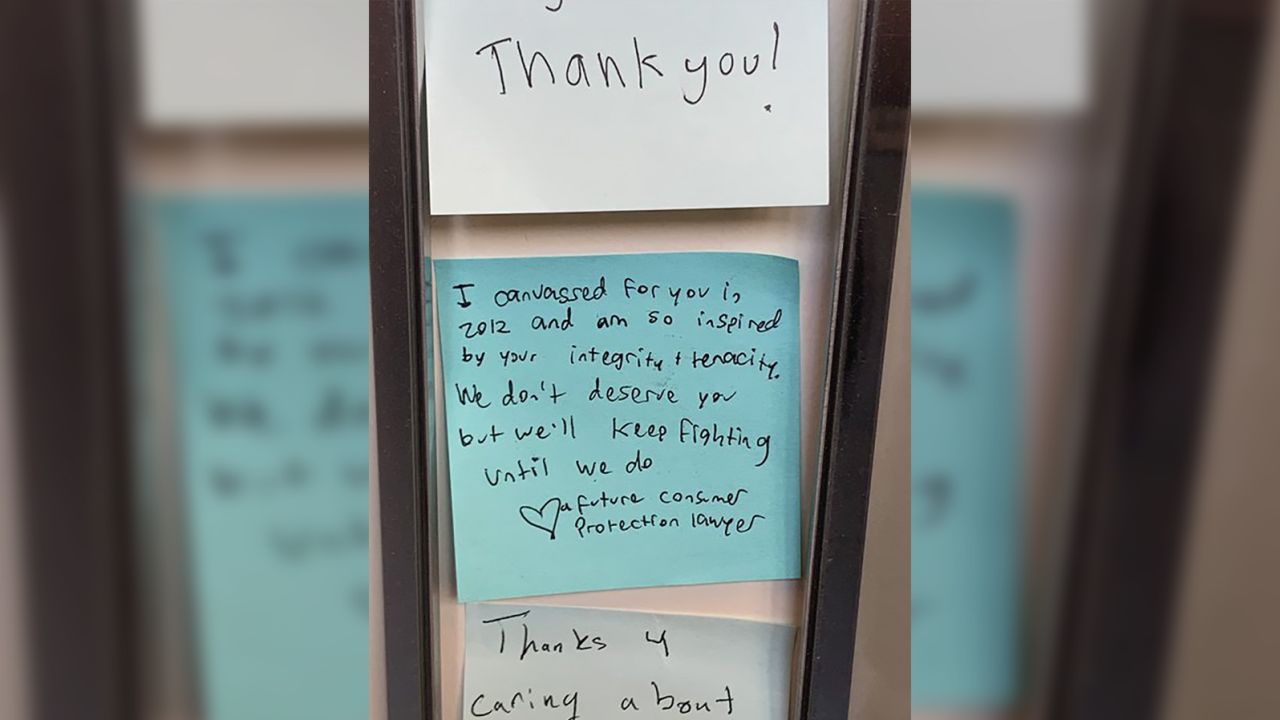 Thank you!
I canvassed for you in
2012 and am so inspired
by your integrity + tenacity.
We don't deserve you
but we'll keep fighting
until we do
♡ a future consumer
protection lawyer
Thanks 4
caring about